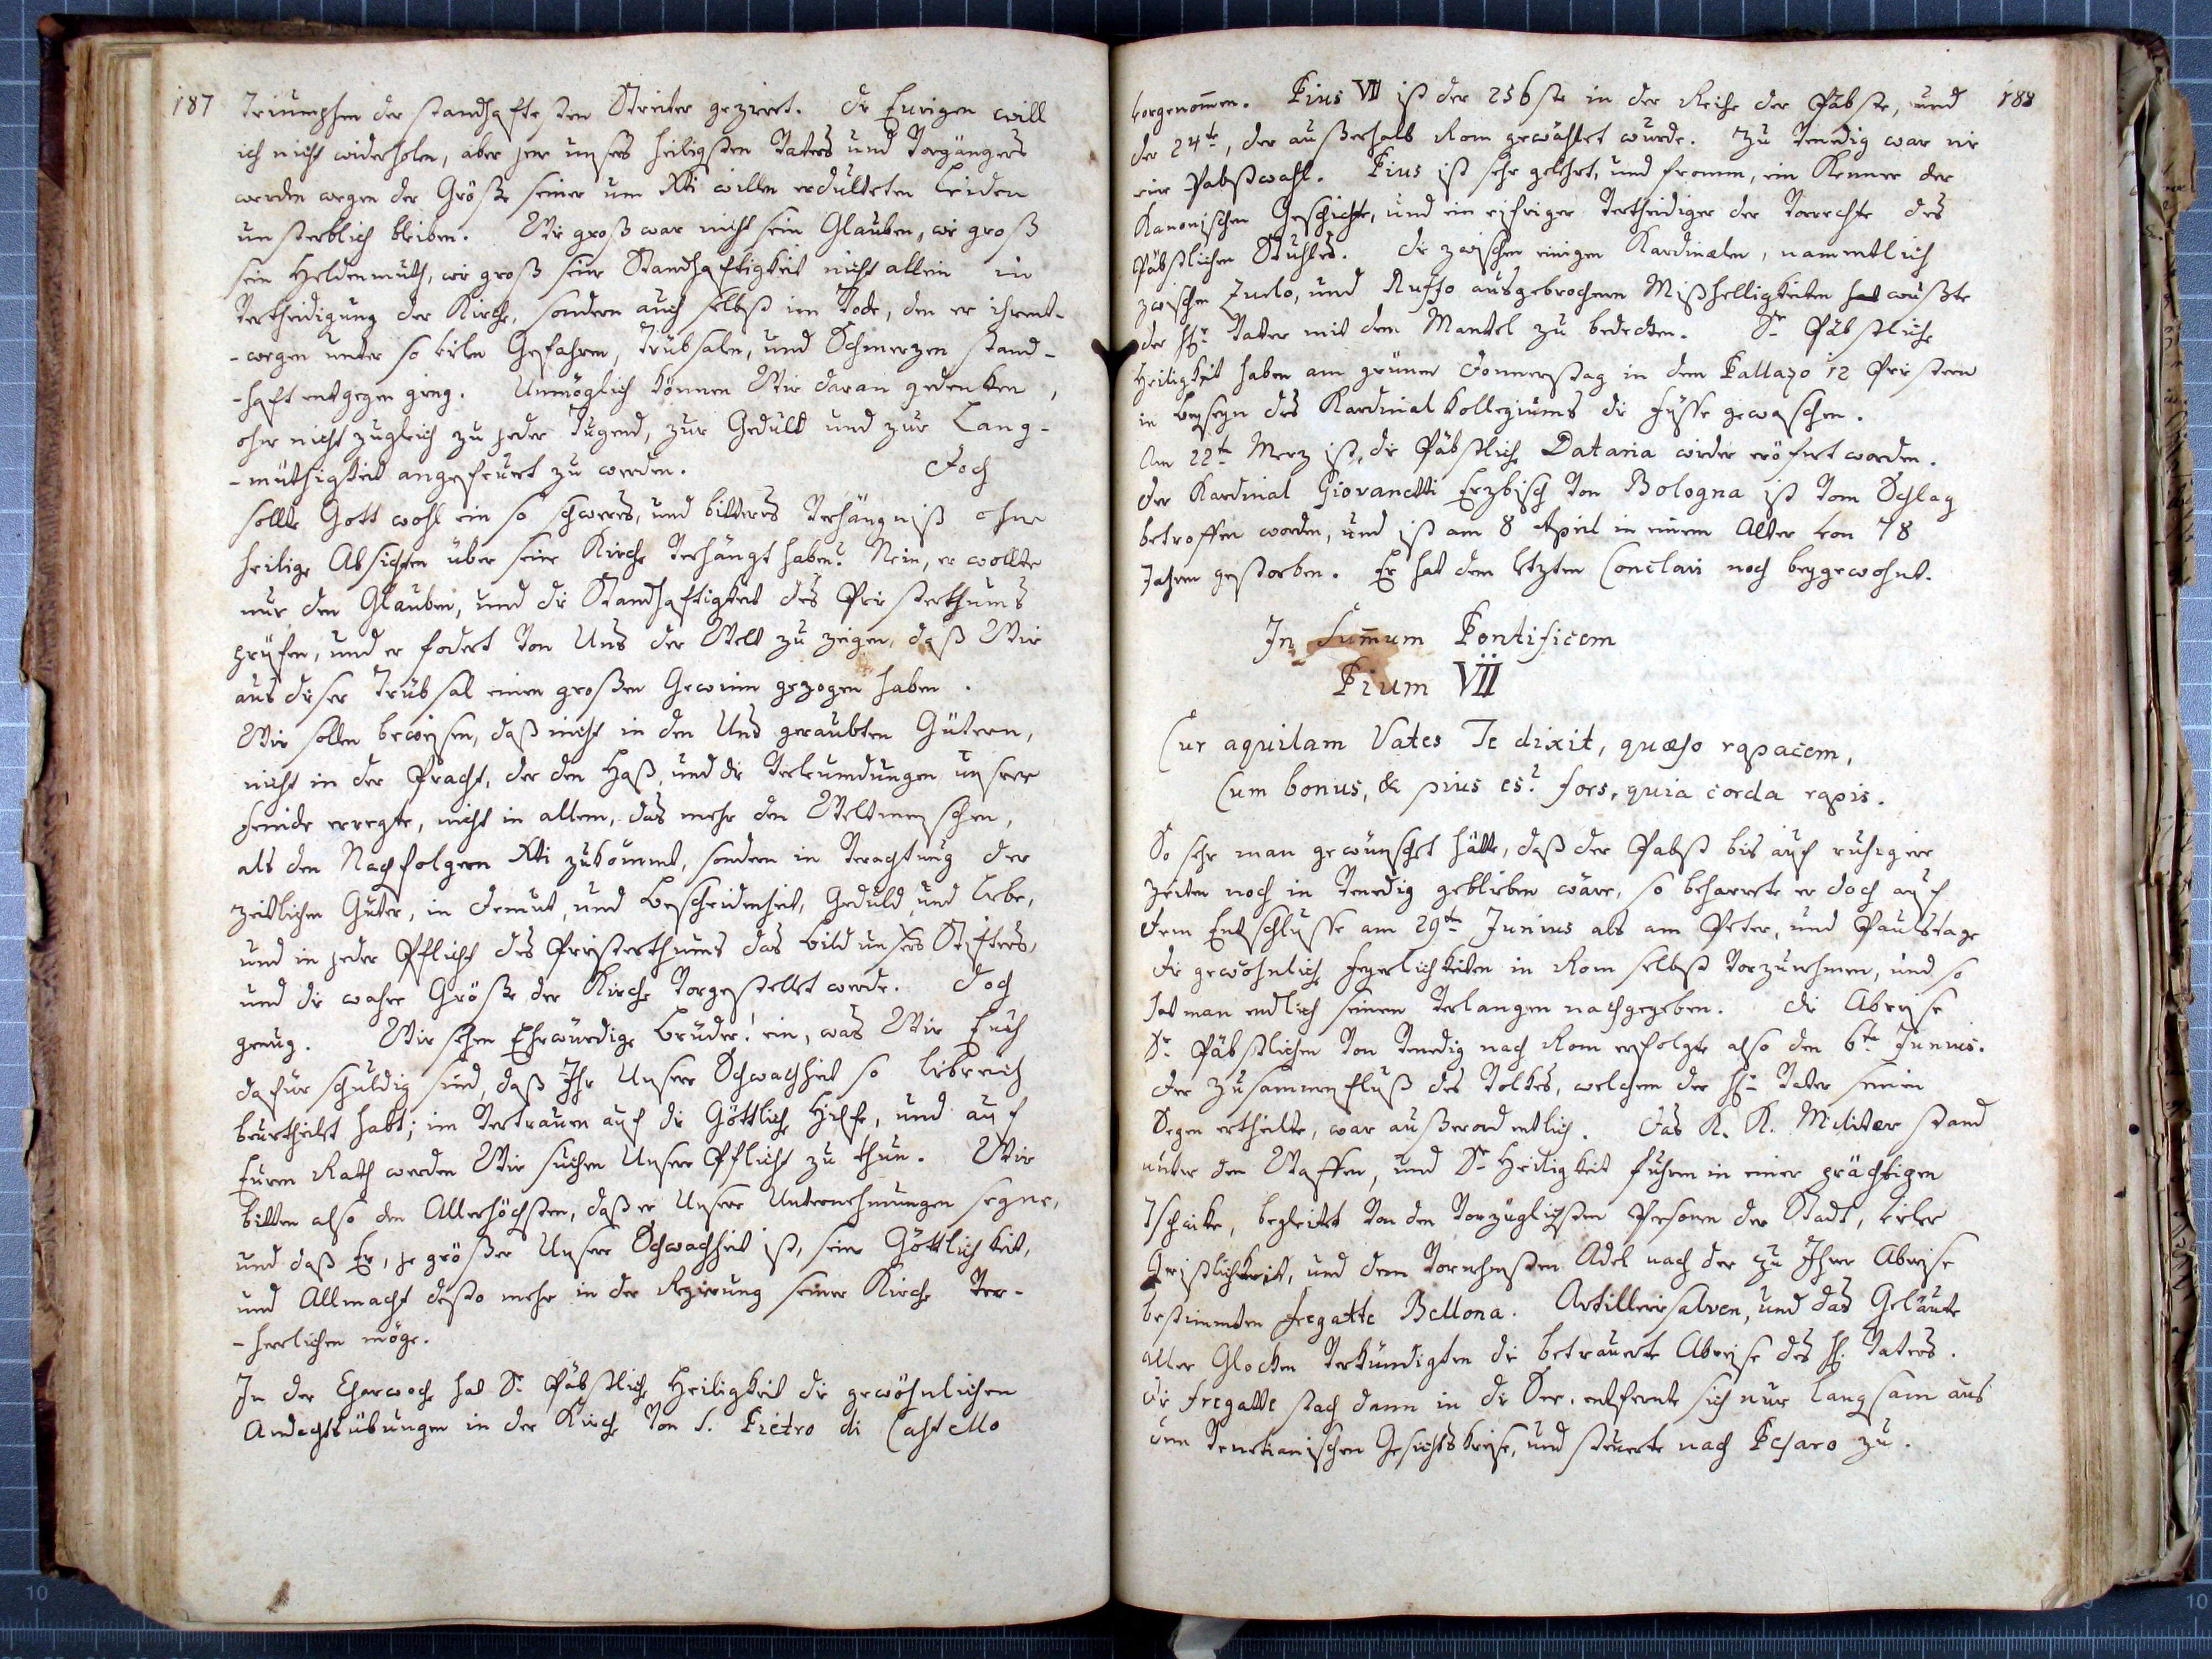 187
Triumphen der standhaftesten Streiter gezieret. Die Eurigen will
ich nicht widerholen, aber jene unsers heiligsten Vaters und Vorgängers
werden wegen der Größe seiner um Xti willen erdulteten Leiden
unsterblich bleiben. Wie groß war nicht sein Glauben, wie groß
sein Heldenmuth, wie groß seine Standhaftigkeit nicht allein in
Vertheidigung der Kirche, sondern auch selbst im Tode, den er ihrent-
-wegen unter so vielen Gefahren, Trübsalen, und Schmerzen stand-
-haft entgegen gieng. Unmöglich können Wir daran gedenken,
ohne nicht zugleich zu jeder Tugend, zur Gedult und zur Lang-
-müthigkeit angefeuert zu werden. Doch
sollte Gott wohl ein so schweres, und bitteres Verhängniß ohne
heilige Absichten über seine Kirche verhängt haben? Nein, er wollte
nur den Glauben, und die Standhaftigkeit des Priesterthums
prüfen, und er fodert von Uns der Welt zu zeigen, daß Wir
aus dieser Trübsal einen großen Gewinn gezogen haben.
Wir sollen beweisen, daß nicht in den Uns geraubten Gütern,
nicht in der Pracht, der den Haß, und die Verleumdungen unserer
Feinde erregte, nicht in allem, das mehr den Weltmenschen,
als den Nachfolgern Xti zukömmt, sondern in Verachtung der
zeitlichen Güter, in Demut, und Bescheidenheit, Geduld, und Liebe,
und in jeder Pflicht des Priesterthums das Bild unsers Stifters,
und die wahre Größe der Kirche vorgestellet werde. Doch
genug. Wir sehen Ehrwürdige Brüder! ein, was Wir Euch
dafür schuldig sind, daß Ihr Unsere Schwachheit so liebreich
beurtheilet habt; im Vertrauen auf die Göttliche Hilfe, und auf
Euren Rath werden Wir suchen Unsere Pflicht zu thun. Wir
bitten also den Allerhöchsten, daß er Unsere Unternehmungen segne,
und daß Er, je größer Unsere Schwachheit ist, seine Göttlichkeit,
und Allmacht desto mehr in der Regierung seiner Kirche ver-
-herrlichen möge.
In der Charwoche hat Se Päbstliche Heiligkeit die gewöhnlichen
Andachtsübungen in der Kirche von S. Pietro di Castello
188
vorgenommen. Pius VII ist der 256ste in der Reihe der Päbste, und
der 24te, der außerhalb Rom gewählet wurde. Zu Venedig war nie
eine Pabstwahl. Pius ist sehr gelehrt, und fromm, ein Kenner der
Kanonischen Geschichte, und ein eifriger Vertheidiger der Vorrechte des
Päbstlichen Stuhles. Die zwischen einigen Kardinælen, nammentlich
zwischen Zurlo, und Ruffo ausgebrochenen Mißhelligkeiten hat wußte
der Hl. Vater mit dem Mantel zu bedecken. Se Päbstliche
Heiligkeit haben am grünen Donnerstag in dem Pallazo 12 Priestern
in Beyseyn des Kardinalkollegiums die Füsse gewaschen.
Am 22ten Merz ist die Päbstliche Dataria wieder eröfnet worden.
Der Kardinal Giovanetti Erzbisch von Bologna ist vom Schlag
betroffen worden, und ist am 8 April in einem Alter von 78
Jahren gestorben. Er hat dem letzten Conclavi noch beygewohnt.
In Sum̄um Pontificem
Pium VII
Cur aquilam Vates Te dixit, quæso rapacem,
Cum bonus, & pius es? fors, quia corda rapis.
So sehr man gewünschet hätte, daß der Pabst bis auf ruhigere
Zeiten noch in Venedig geblieben wäre, so beharrete er doch auf
dem Entschlusse am 29ten Junius als am Peter, und Paulstage
die gewöhnlich Feyerlichkeiten in Rom selbst vorzunehmen, und so
hat man endlich seinem Verlangen nachgegeben. Die Abreise
Sr Päbstlichen von Venedig nach Rom erfolgte also den 6ten Junius.
Der Zusammenfluß des Volkes, welchem der Hl. Vater seinen
Segen ertheilte, war außerordentlich. Das K. K. Militær stand
unter den Waffen, und Se Heiligkeit fuhren in einer prächtigen
Tschaike, begleitet von den vorzüglichsten Personen der Stadt, vieler
Geistlichkeit, und dem vornehmsten Adel nach der zu Ihrer Abreise
bestimmten Fregatte Bellona. Artilleriesalven, und das Geläute
aller Glocken verkündigten die betrauerte Abreise des H. Vaters.
Die Fregatte stach dann in die See, entfernte sich nur langsam aus
dem Venetianischen Gesichtskreise, und steuerte nach Pesaro zu.